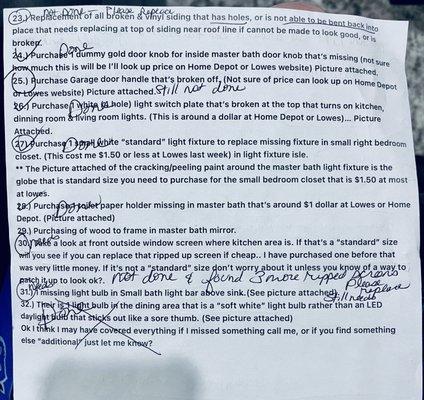 not done - Please Replace
23.) Replacement of all broken & vinyl siding that has holes, or is not able to be bent back into
place that needs replacing at top of siding near roof line if cannot be made to look good, or is
broken. Done
24.) Purchase 1 dummy gold door knob for inside master bath door knob that's missing (not sure
how much this is will be I'll look up price on Home Depot or Lowes website) Picture attached.
25.) Purchase Garage door handle that's broken off, (Not sure of price can look up on Home Depot
or Lowes website) Picture attached. Still not done
26.) Purchase 1 white ( hole) light switch plate that's broken at the top that turns on kitchen,
dinning room & living room lights. (This is around a dollar at Home Depot or Lowe)... Picture
Attached. Done
27.) Purchase 1 small white "standard" light fixture to replace missing fixture in small right bedroom
closet. (This cost me $1.50 or less at Lowes last week) in light fixture isle.
** The Picture attached of the cracking/peeling paint around the master bath light fixture is the
globe that is standard size you need to purchase for the small bedroom closet that is $1.50 at most
at lowes. Done
28.) Purchase toilet paper holder missing in master bath that's around $1 dollar at Lowes or Home
Depot. (Picture attached)
29.) Purchasing of wood to frame in master bath mirror.
30.) Take a look at front outside window screen where kitchen area is. If that's a "standard" size
will you see if you can replace that ripped up screen if cheap.. I have purchased one before that
was very little money. If it's not a "standard" size don't worry about it unless you know of a way to
patch it up to look ok?. not done & found 3 more ripped screens
Please replace
31.) 1 missing light bulb in Small bath light bar above sink.(See picture attached) Still needs
32.) Their is 1 light bulb in the dining area that is a "soft white" light bulb rather than an LED
daylight bulb that sticks out like a sore thumb. (See picture attached)
Done
Ok I think I may have covered everything if I missed something call me, or if you find something
else "additional" just let me know?